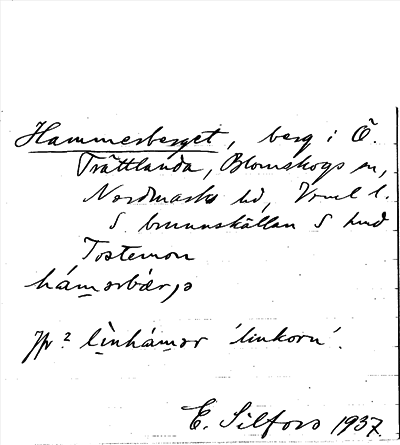 Hammerberget, berg i Ö.
Trättlanda, Blomskogs sn,
Nordmarks hd, Vrml l.
S brunnskällan S hud
Tostemon
hámərbær,ə
Jfr ² lìnhámər 'linkorn'.
E. Silfors 1937